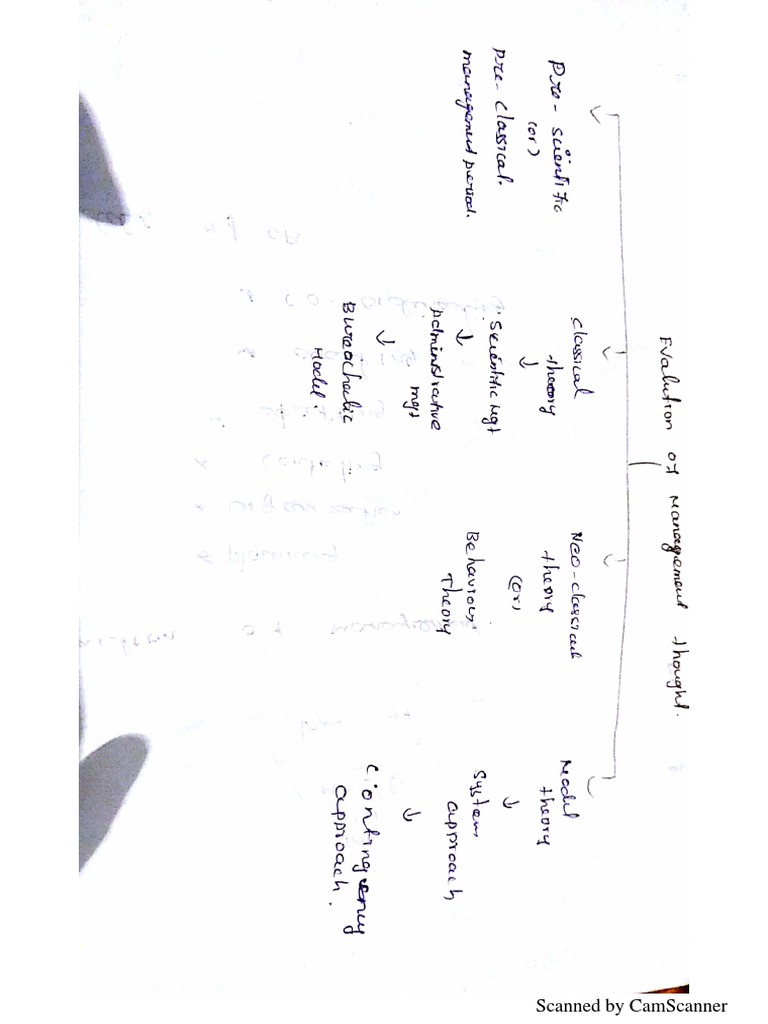 Evalution of Management thought.
Pre-scientific
(or)
Pre-classical.
management period.
classical
theory
↓
Scientific mgt
↓
Administrative
mgt
↓
Bureachelic
Model.
Neo-classical
theory
(or)
Behaviour
Theory
Model
theory
↓
System
approach
↓
Contingency
approach.
Scanned by CamScanner